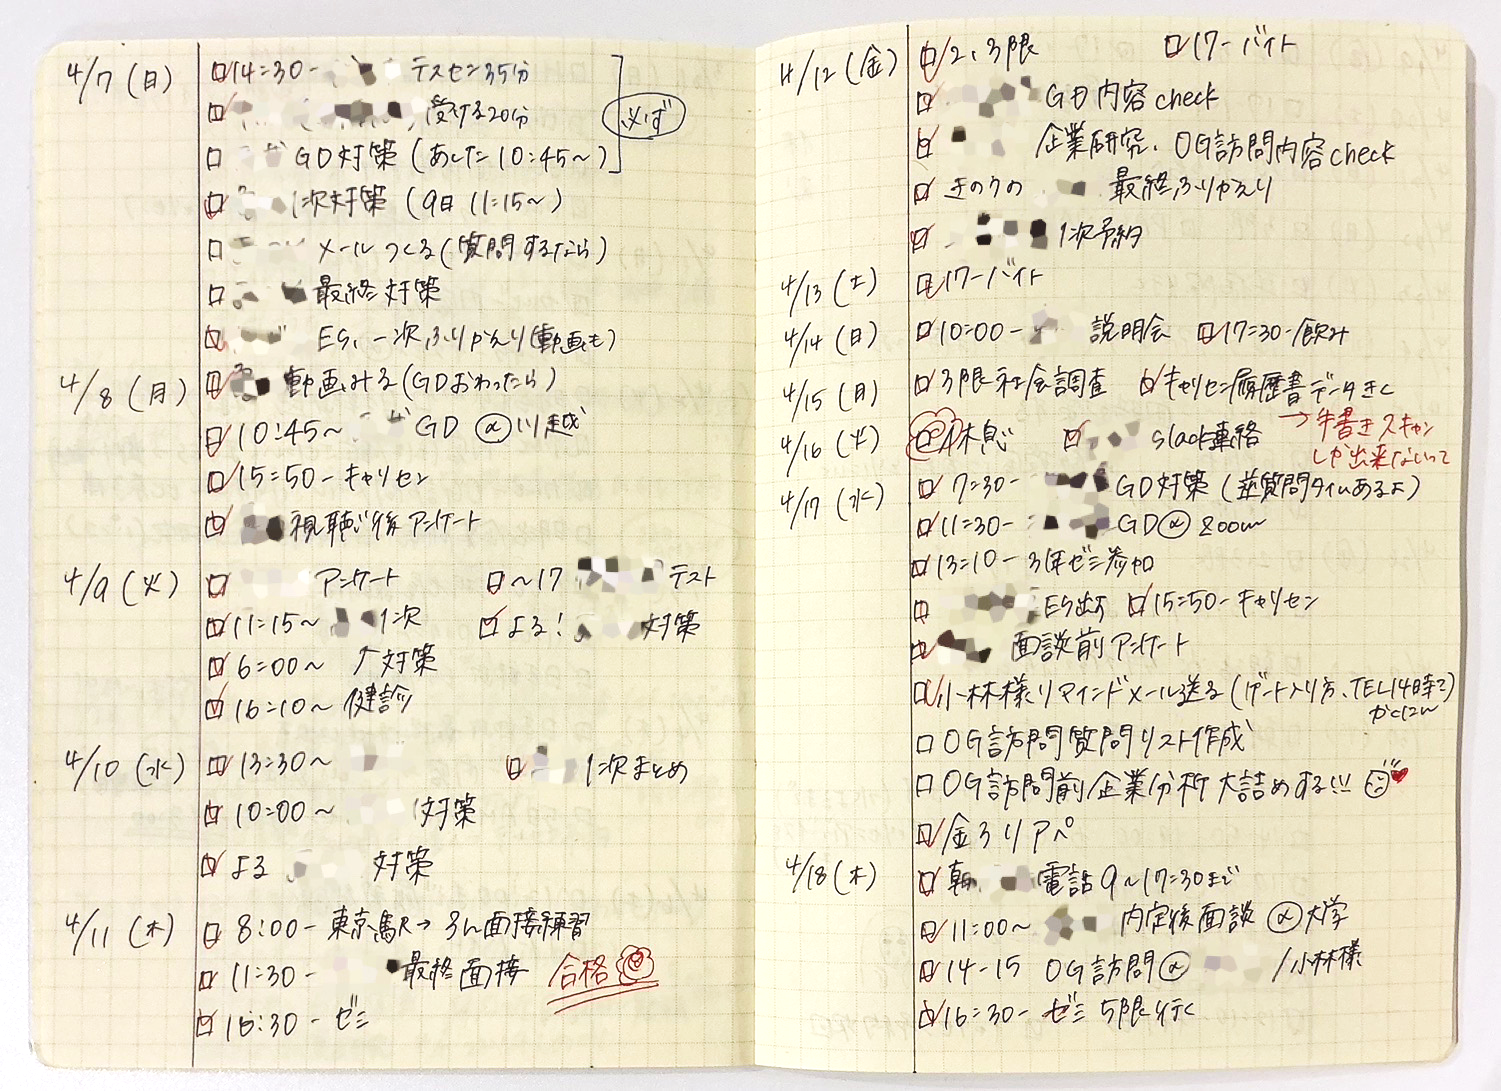 4/7(日) 14:30- テスセン35分
受ける20分 必ず
GD対策(あした10:45~)
1次対策(9日 11:15~)
メールつくる(質問するなら)
最終対策
ES、一次ふりかえり(動画も)
4/8(月) 動画みる(GDおわったら)
10:45~ GD @川越
15:50-キャリセン
視聴後アンケート
4/9(火) アンケート ~17 テスト
11:15~ 1次 よる! 対策
6:00~ ↑対策
16:10~ 健診
4/10(水) 13:30~ 1次まとめ
10:00~ 対策
よる 対策
4/11(木) 8:00-東京駅→ 面接練習
11:30- 最終面接 合格
16:30-ゼミ
4/12(金) 2、3限 17-バイト
GD内容check
企業研究、OG訪問内容check
きのうの 最終ふりかえり
1次予約
4/13(土) 17-バイト
4/14(日) 10:00- 説明会 17:30-飲み
4/15(月) 3限社会調査 キャリセン履歴書データきく
→手書きスキャン
しか出来ないって
4/16(火) 休息 slack連絡
4/17(水) 7:30- GD対策(逆質問タイムあるよ)
11:30- GD@zoom
13:10-3年ゼミ参加
ES出す 15:50-キャリセン
面談前アンケート
小林様リマインドメール送る(ゲート入り方、TEL14時で)
かくにん
OG訪問質問リスト作成
OG訪問前企業分析大詰めする!!!
金ろリアペ
4/18(木) 朝 電話9~17:30まで
11:00~ 内定後面談@大学
14-15 OG訪問@ /小林様
16:30-ゼミ 5限行く